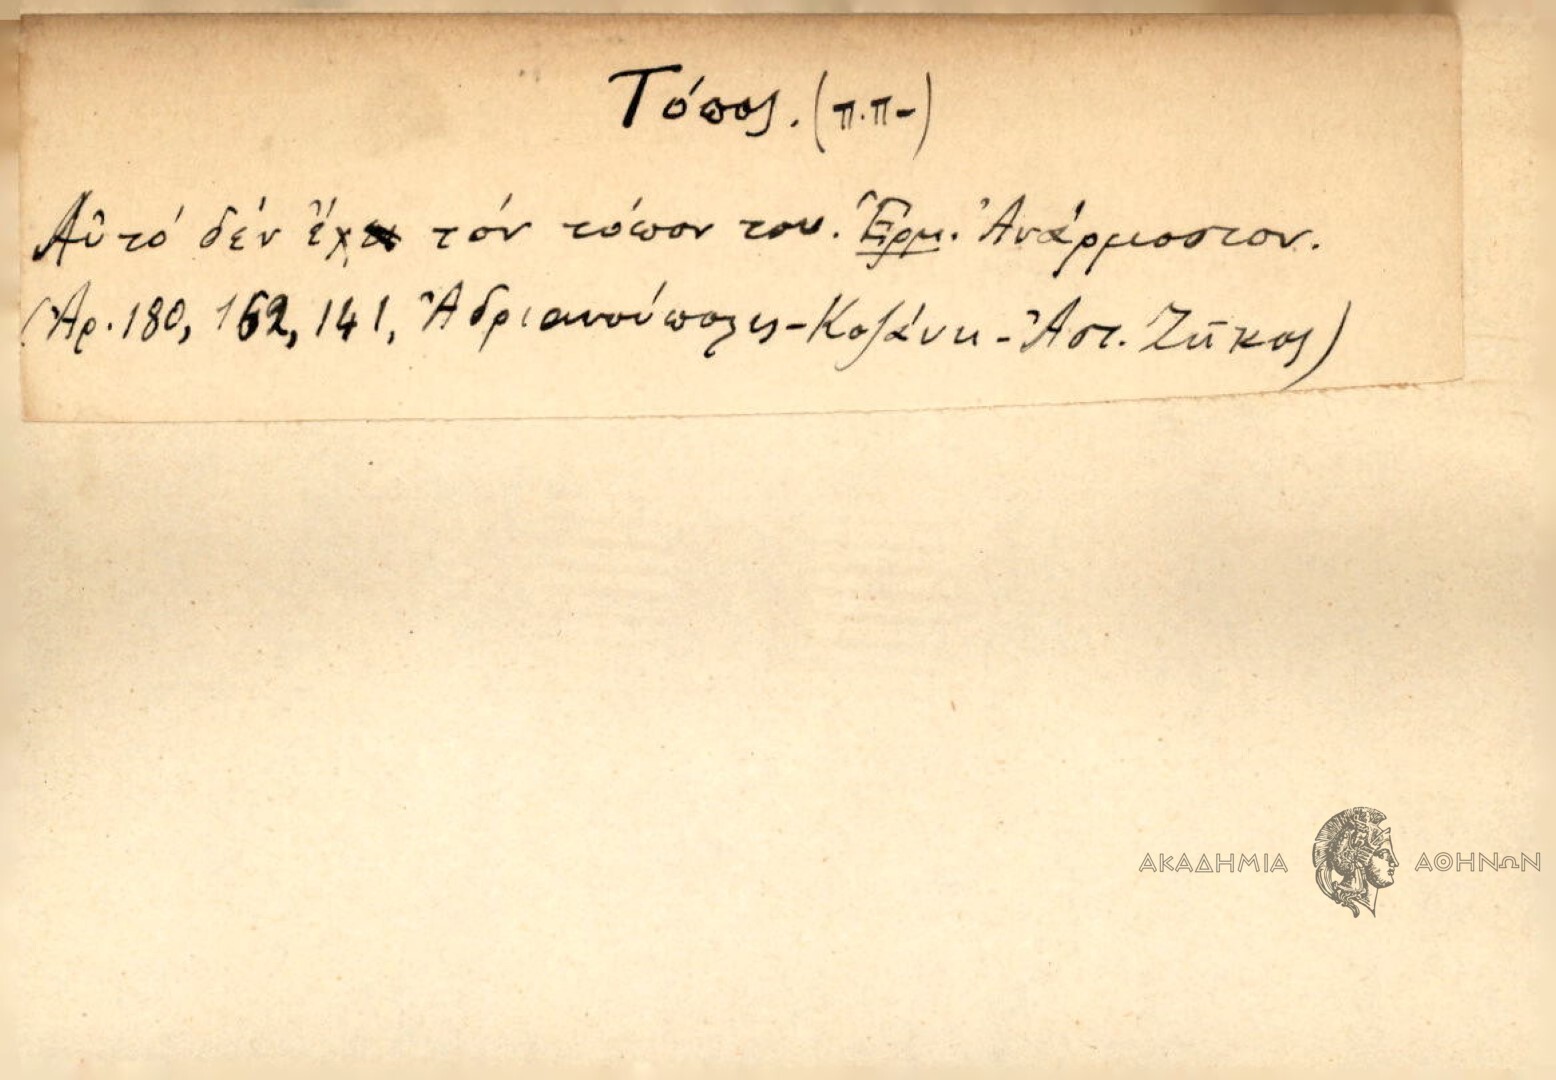 Τόπος. (π.π-)
Αὐτό δέν ἔχει τόν τόπον του. Ἑρμ. Ἀνάρμοστον.
(Ἀρ. 180, 162, 141, Ἀδριανούπολις-Κοζάνη-Ἀστ. Ζῆκος)
ΑΚΑΔΗΜΙΑ ΑΘΗΝΩΝ